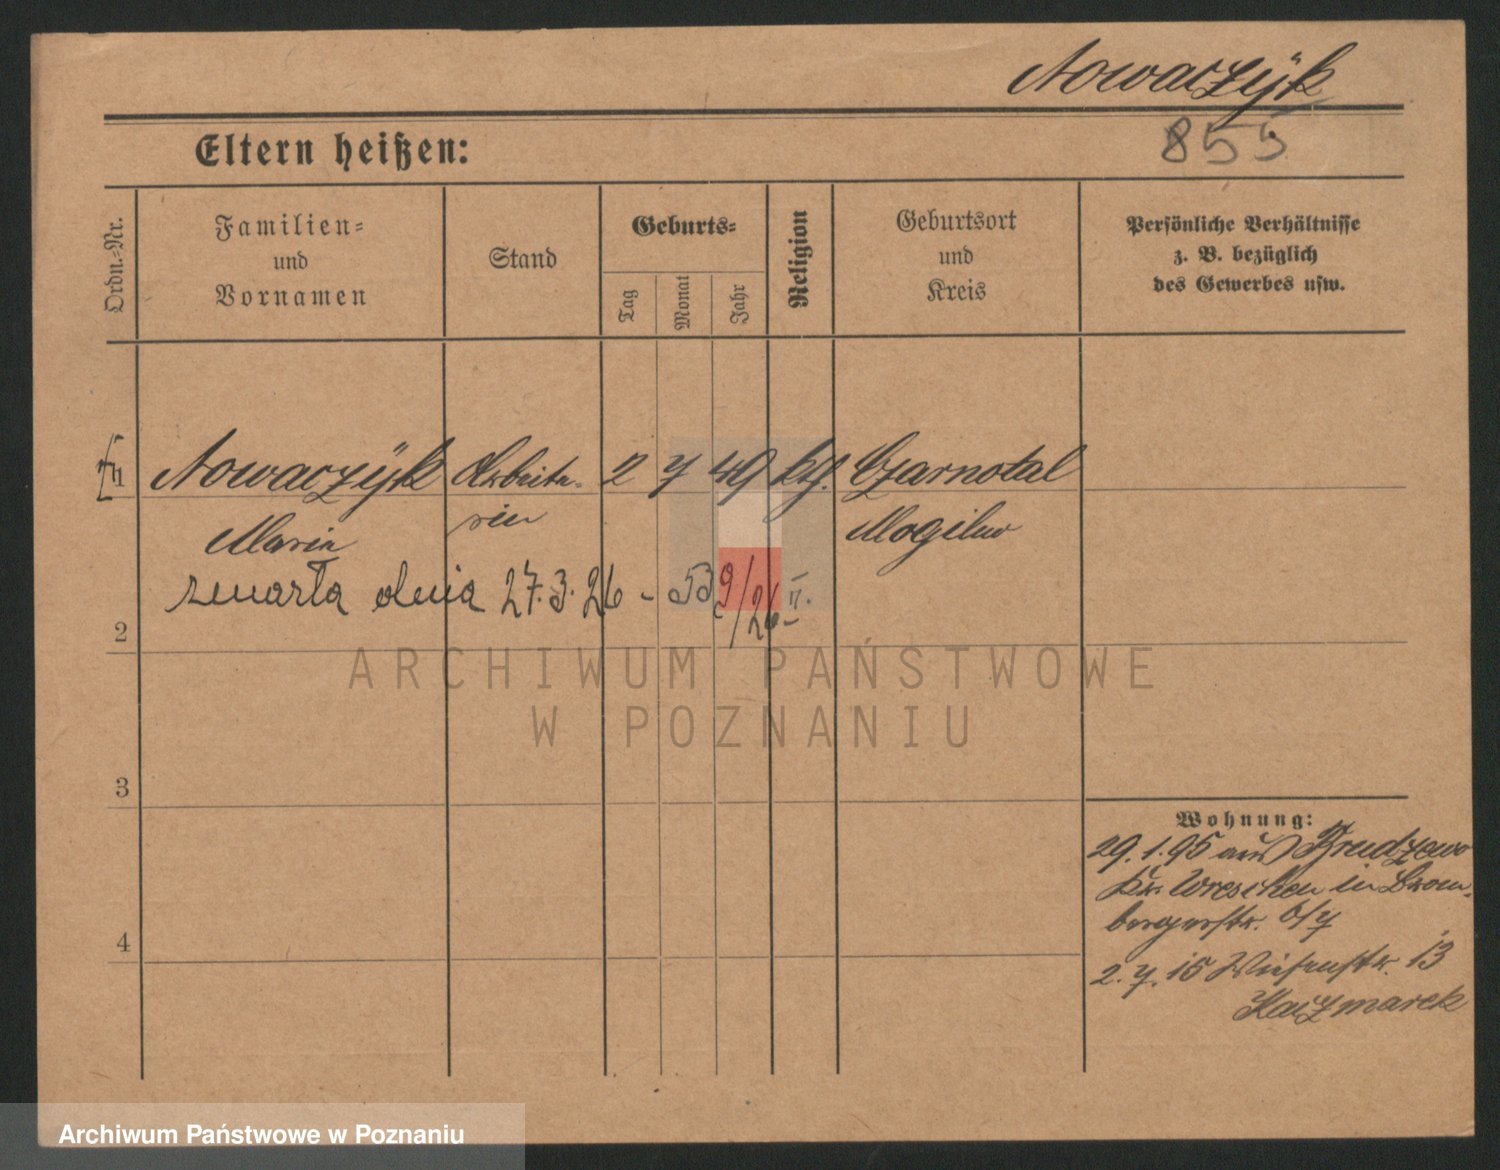 Nowaczÿk
855
Eltern heißen:
Ordn.-Nr.
Familien-
und
Vornamen
Stand
Geburts-
Tag
Monat
Jahr
Religion
Geburtsort
und
Kreis
Persönliche Verhältnisse
z. B. bezüglich
des Gewerbes usw.
1 Nowaczÿk Arbeite- 2 7 49 kth. Czarnotal
Maria rin Mogilno
zmarła dnia 27.3.26 - 539/26 II.
2
ARCHIWUM PAŃSTWOWE
W POZNANIU
3
4
Wohnung:
29.1.95 aus
Kr. Wreschen in Brom-
bergerstr. 6/7
2.7.15 Wiesenstr. 13
Kaczmarek
Archiwum Państwowe w Poznaniu